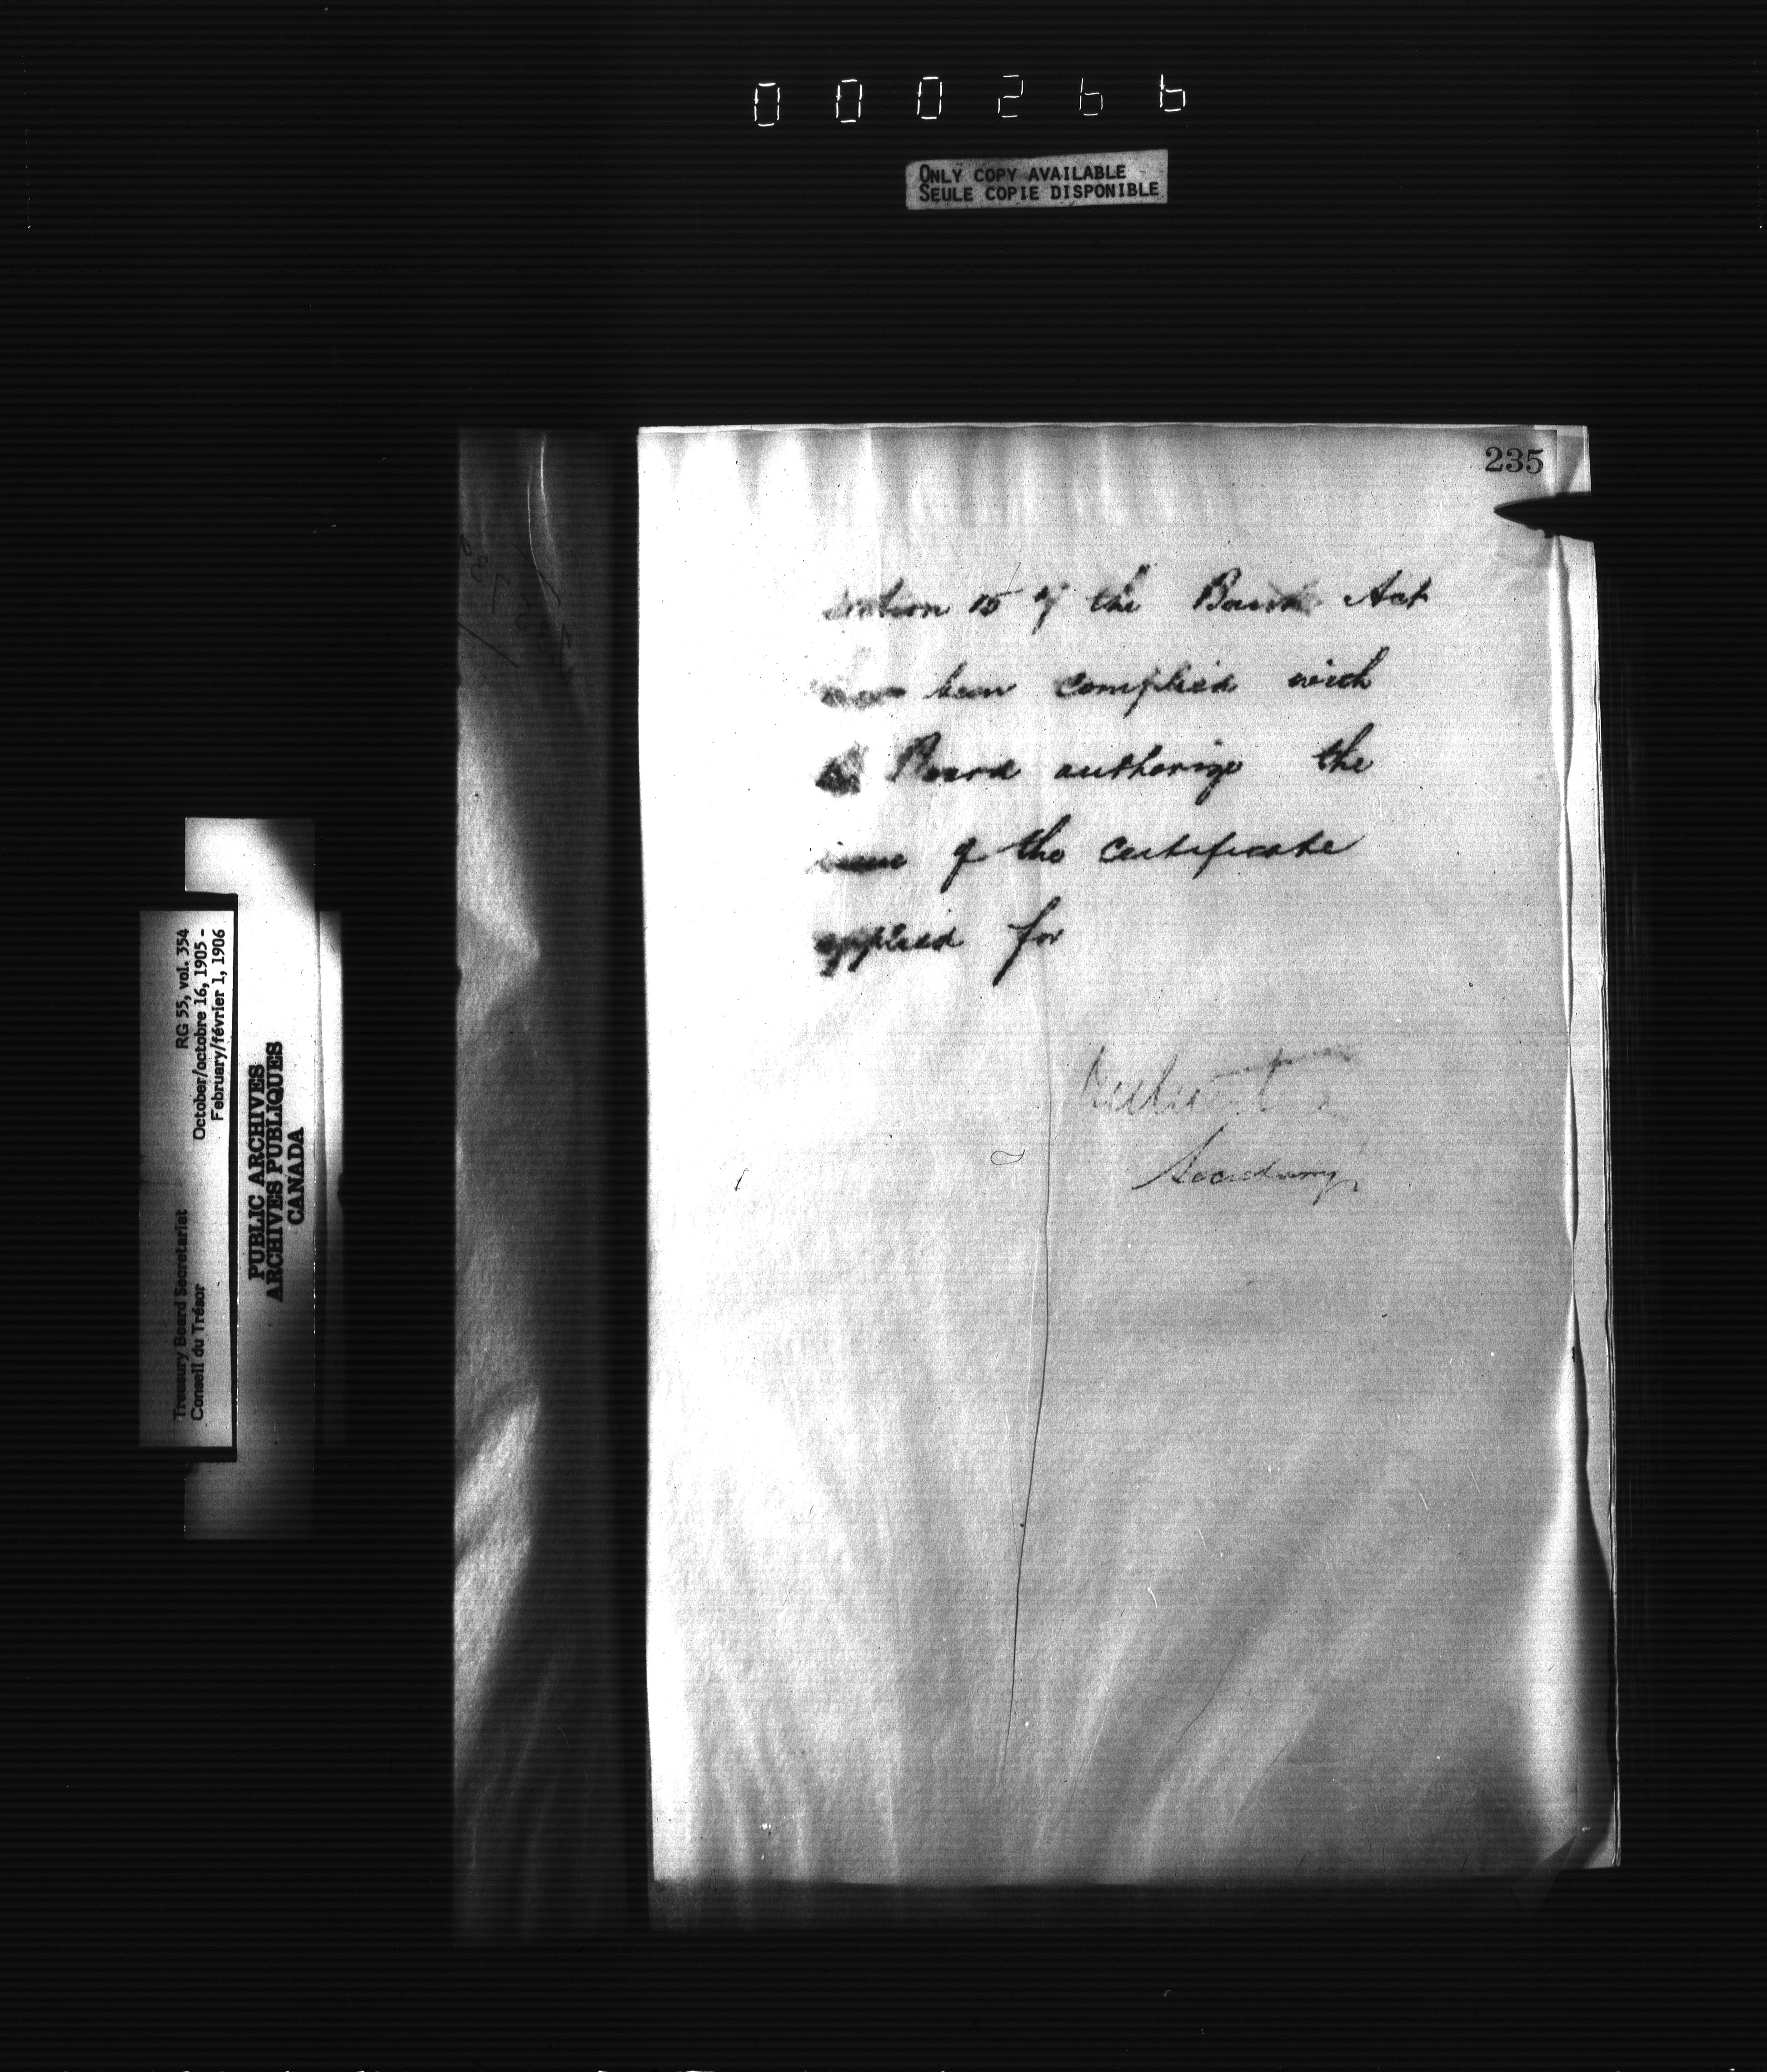 000266
ONLY COPY AVAILABLE
SEULE COPIE DISPONIBLE
235
section 15 of the Bank Act
have been complied with
the Board authorize the
issue of the certificate
applied for
Secretary
Treasury Board Secretariat RG 55, vol. 354
Conseil du Trésor October/octobre 16, 1905 -
February/février 1, 1906
PUBLIC ARCHIVES
ARCHIVES PUBLIQUES
CANADA